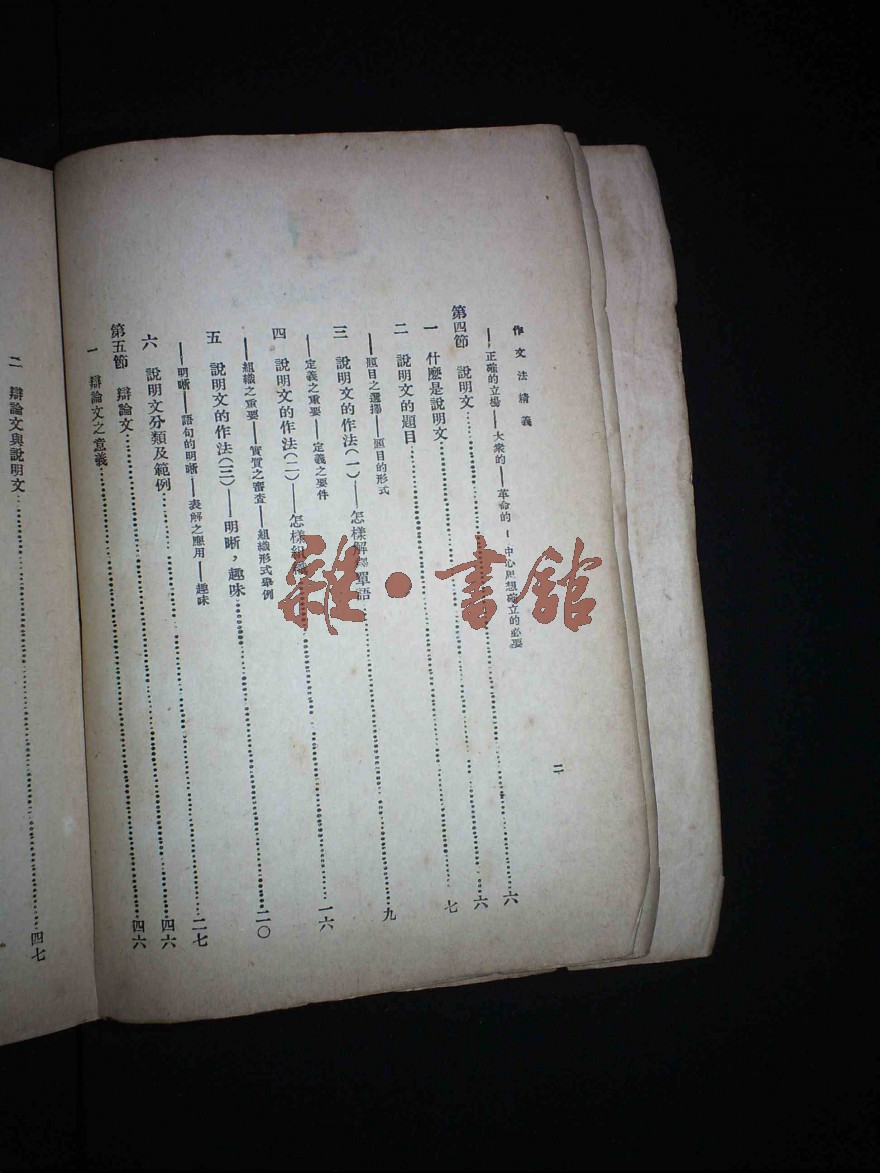 作文法精義
二
——正確的立場——大衆的——革命的——中心思想確立的必要
第四節 說明文……六
一 什麽是說明文……六
二 說明文的題目……七
——題目之選擇——題目的形式
三 說明文的作法(一)——怎樣解釋單語……九
——定義之重要——定義之要件
四 說明文的作法(二)——怎樣組織……一六
——組織之重要——實質之審査——組織形式舉例
五 說明文的作法(三)——明晰，趣味……二〇
——明晰——語句的明晰——表解之應用——趣味
六 說明文分類及範例……二七
第五節 辯論文……四六
一 辯論文之意義……四六
二 辯論文與說明文……四七
雜·書館